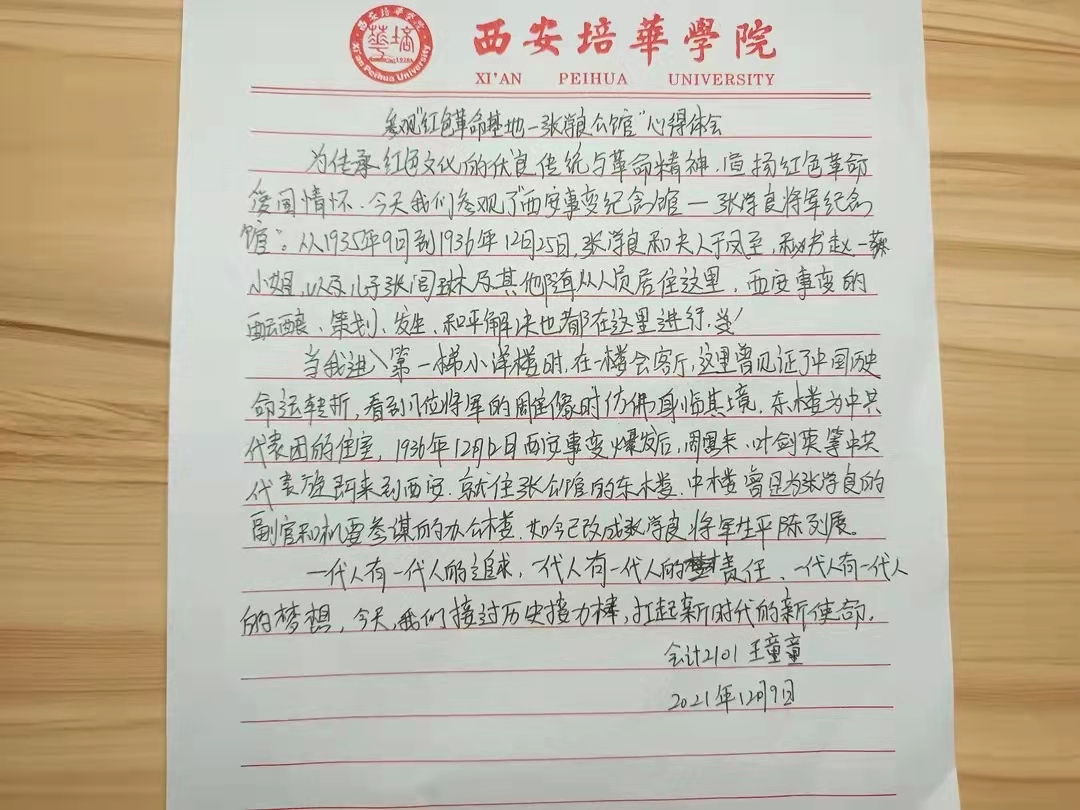 西安培華學院
XI'AN PEIHUA UNIVERSITY
西安培华学院
華培
1928
Xi'an Peihua University
参观"红色革命基地—张学良公馆"心得体会
为传承红色文化的优良传统与革命精神,宣扬红色革命
爱国情怀.今天我们参观了"西安事变纪念馆—张学良将军纪念
馆"。从1935年9月到1936年12月25日,张学良和夫人于凤至,秘书赵一荻
小姐,以及儿子张闾琳及其他随从人员居住这里,西安事变的
酝酿、策划、发生、和平解决也都在这里进行.
当我进入第一梯小洋楼时,在一楼会客厅,这里曾见证了中国历史
命运转折,看到几位将军的雕像时仿佛身临其境.东楼为中共
代表团的住室,1936年12月12日西安事变爆发后,周恩来、叶剑英等中共
代表应约来到西安.就住张公馆的东楼.中楼曾是为张学良的
副官和机要参谋的办公楼.如今已改成张学良将军生平陈列展。
一代人有一代人的追求,一代人有一代人的责任、一代人有一代人
的梦想,今天,我们接过历史接力棒,扛起新时代的新使命.
会计2101 王童童
2021年12月9日